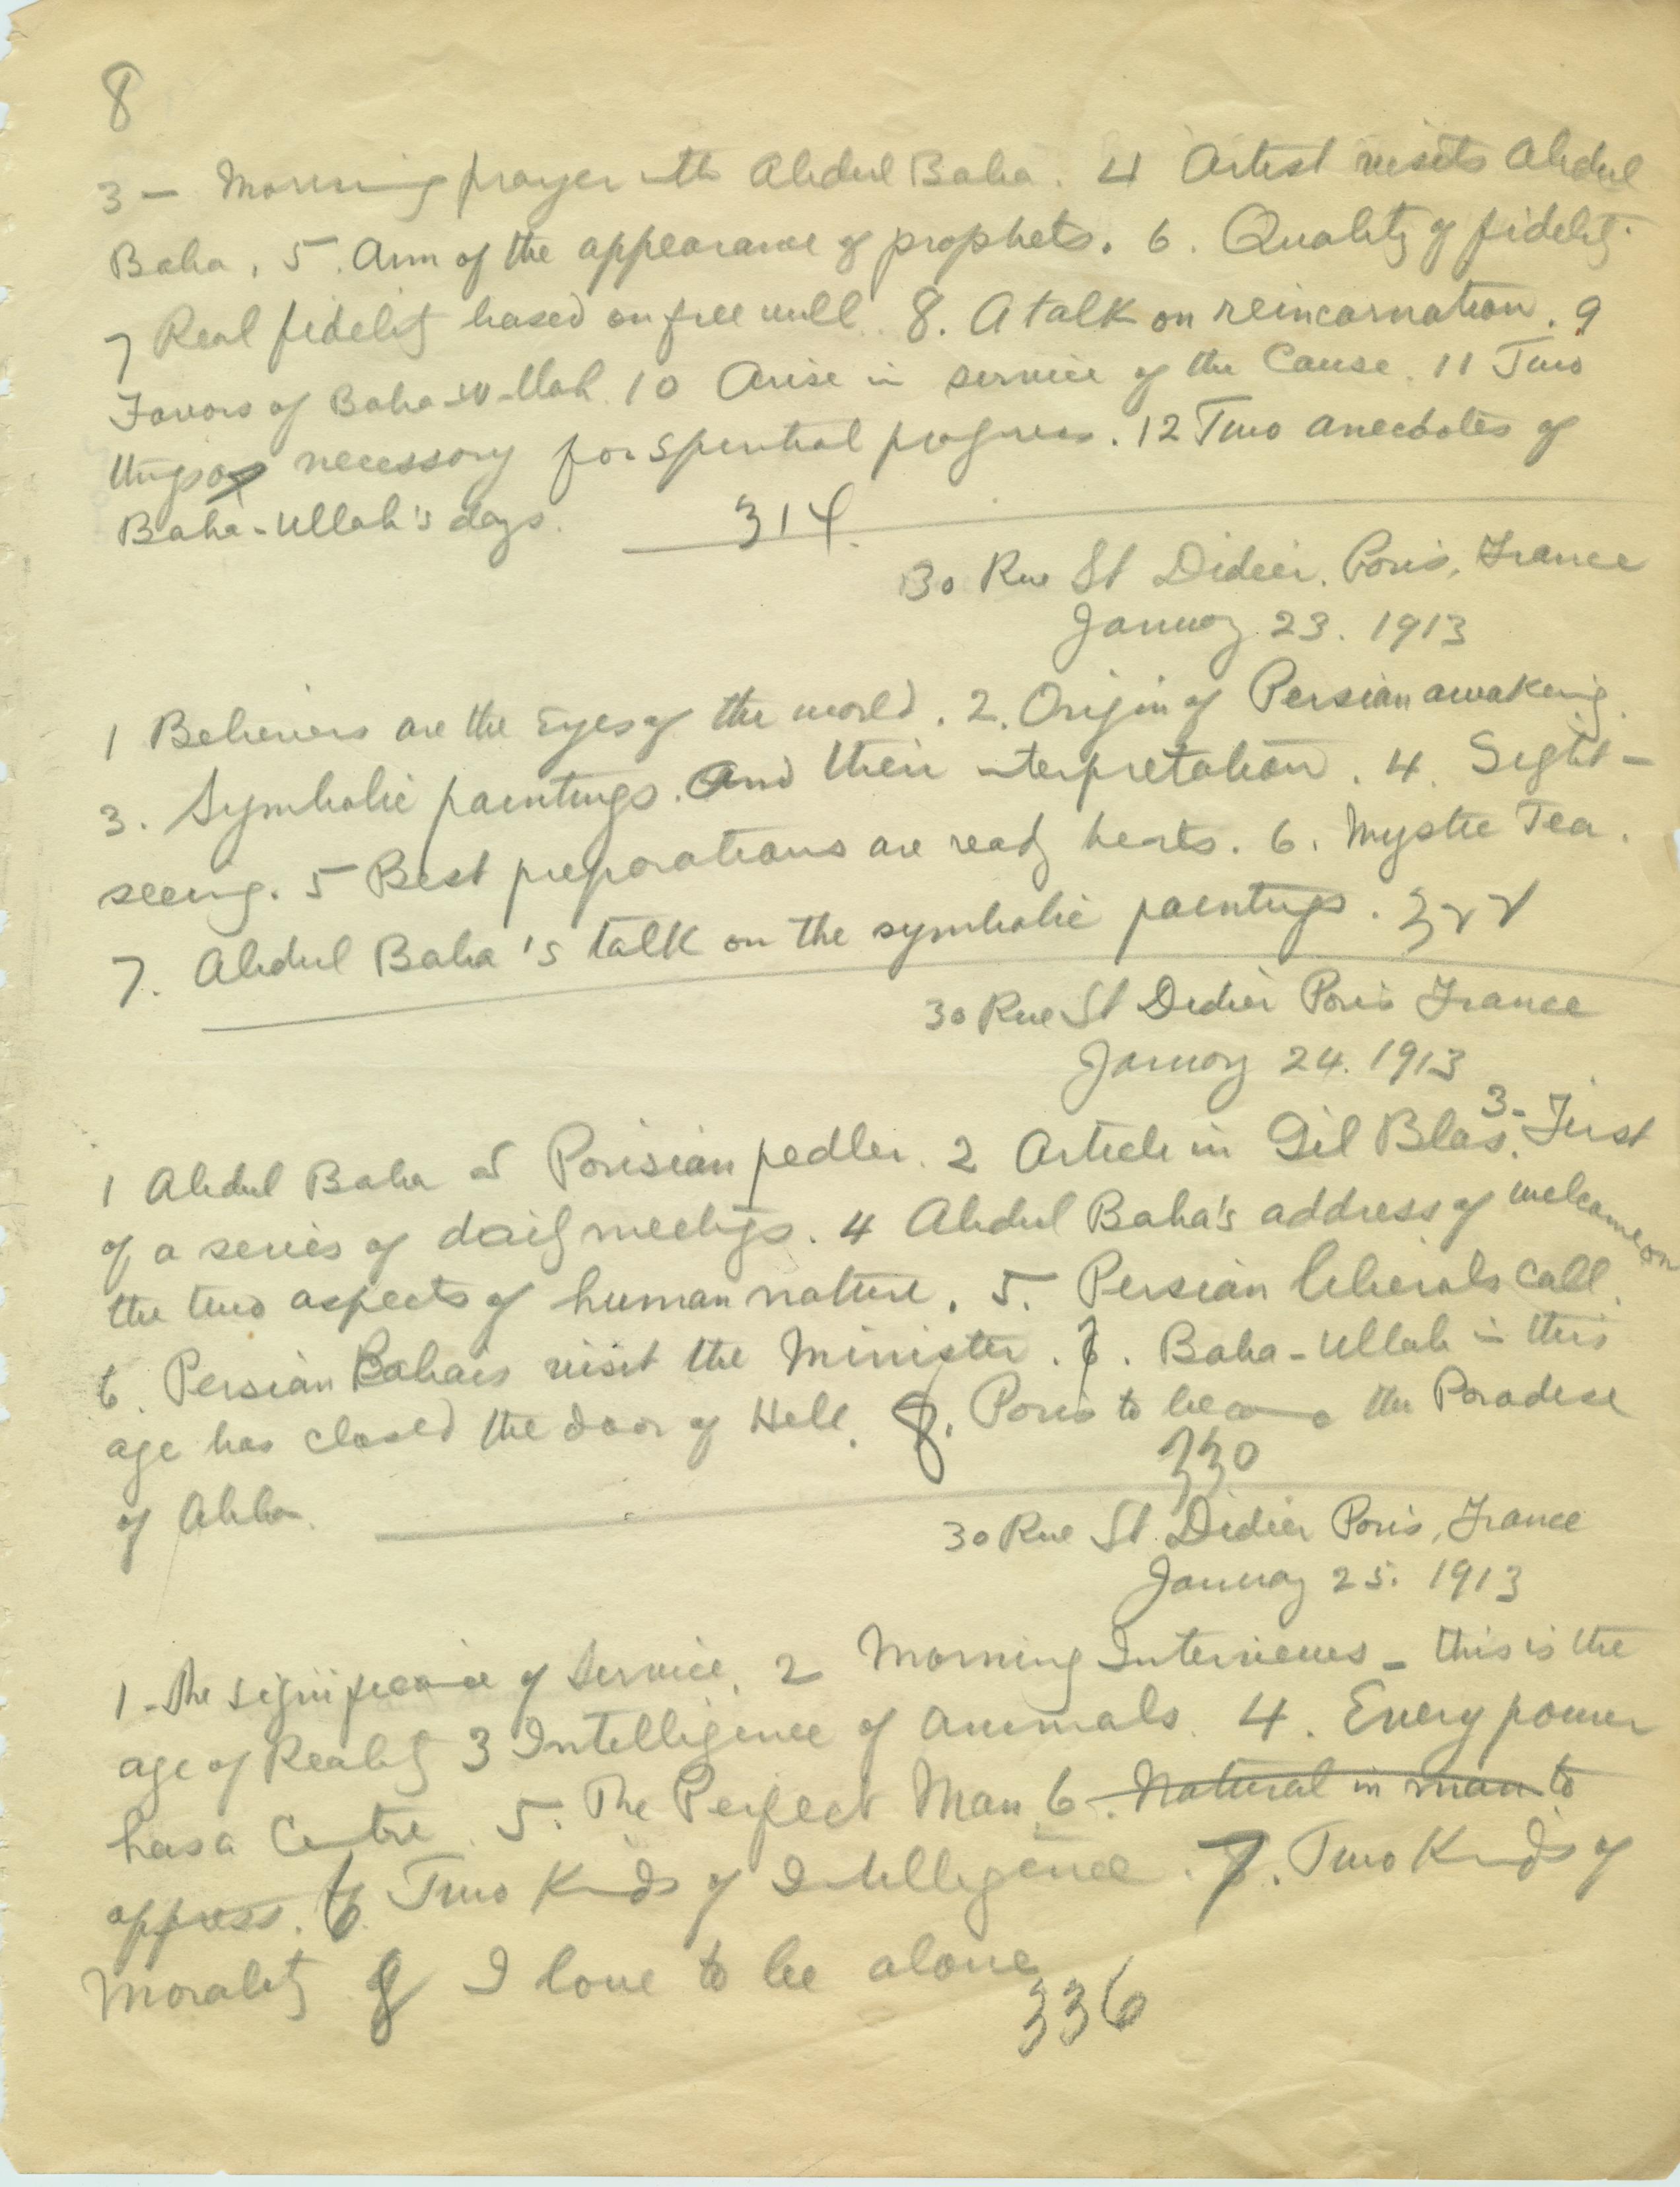 8
3 - Morning prayer with Abdul Baha. 4 Artist visits Abdul
Baha. 5. Aim of the appearance of prophets. 6. Quality of fidelity.
7 Real fidelity based on free will. 8. A talk on reincarnation. 9
Favors of Baha-Ullah. 10 Arise in service of the Cause. 11 Two
things necessary for spiritual progress. 12 Two anecdotes of
Baha-Ullah's days. 314.
30 Rue St Didier, Paris, France
January 23. 1913
1 Believers are the Eyes of the world. 2. Origin of Persian awakening.
3. Symbolic paintings. And their interpretation. 4. Sight-
seeing. 5 Best preparations are ready hearts. 6. Mystic Tea.
7. Abdul Baha's talk on the symbolic paintings. 322
30 Rue St Didier Paris France
January 24. 1913
1 Abdul Baha & Parisian pedler. 2 Article in Gil Blas. 3- First
of a series of daily meetings. 4 Abdul Baha's address of welcome on
the two aspects of human nature. 5. Persian liberals call.
6. Persian Bahais visit the Minister. 7. Baha-Ullah in this
age has closed the door of Hell. 8. Paris to become the Paradise
of Abha. 330
30 Rue St. Didier Paris, France
January 25. 1913
1 - The significance of Service. 2 Morning Interviews - this is the
age of Reality 3 Intelligence of animals. 4. Every power
has a Centre. 5. The Perfect Man 6. Natural in man to
oppress. 6. Two Kinds of Intelligence. 7. Two Kinds of
Morality 8 I love to be alone
336